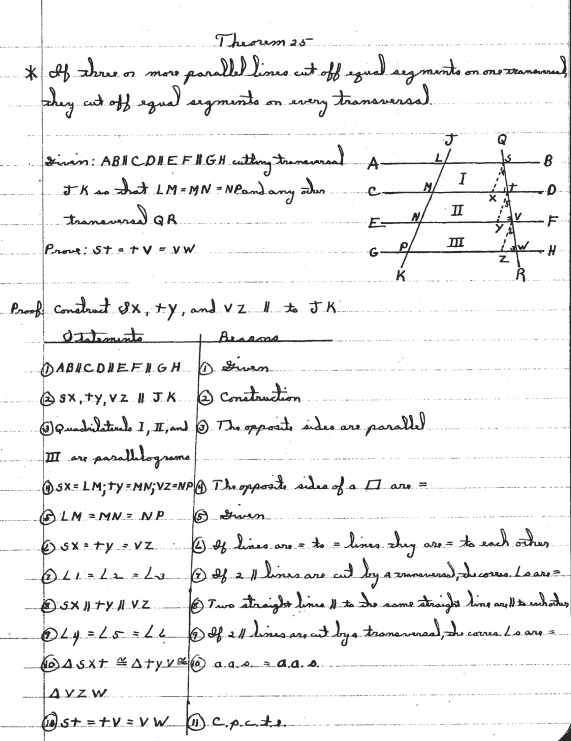 Theorem 25
* If three or more parallel lines cut off equal segments on one transversal,
they cut off equal segments on every transversal.
Given: AB∥CD∥EF∥GH cutting transversal
JK so that LM=MN=NP and any other
transversal QR
Prove: St = tV = VW
J Q
A L S B
I
C M X t D
II
E N Y V F
III
G P Z W H
K R
Proof: Construct SX, tY, and VZ ∥ to JK
Statements Reasons
① AB∥CD∥EF∥GH ① Given
② SX, tY, VZ ∥ JK ② Construction
③ Quadrilaterals I, II, and ③ The opposite sides are parallel
III are parallelograms
④ SX=LM; tY=MN; VZ=NP ④ The opposite sides of a ▱ are =
⑤ LM = MN = NP ⑤ Given
⑥ SX = tY = VZ ⑥ If lines are = to = lines they are = to each other
⑦ ∠1 = ∠2 = ∠3 ⑦ If 2 ∥ lines are cut by a transversal, the corres. ∠s are =
⑧ SX ∥ tY ∥ VZ ⑧ Two straight lines ∥ to the same straight line are ∥ to each other
⑨ ∠4 = ∠5 = ∠6 ⑨ If 2 ∥ lines are cut by a transversal, the corres. ∠s are =
⑩ △SXt ≅ △tYV ≅ ⑩ a.a.s. = a.a.s.
△VZW
⑪ St = tV = VW ⑪ C.p.c.t.e.